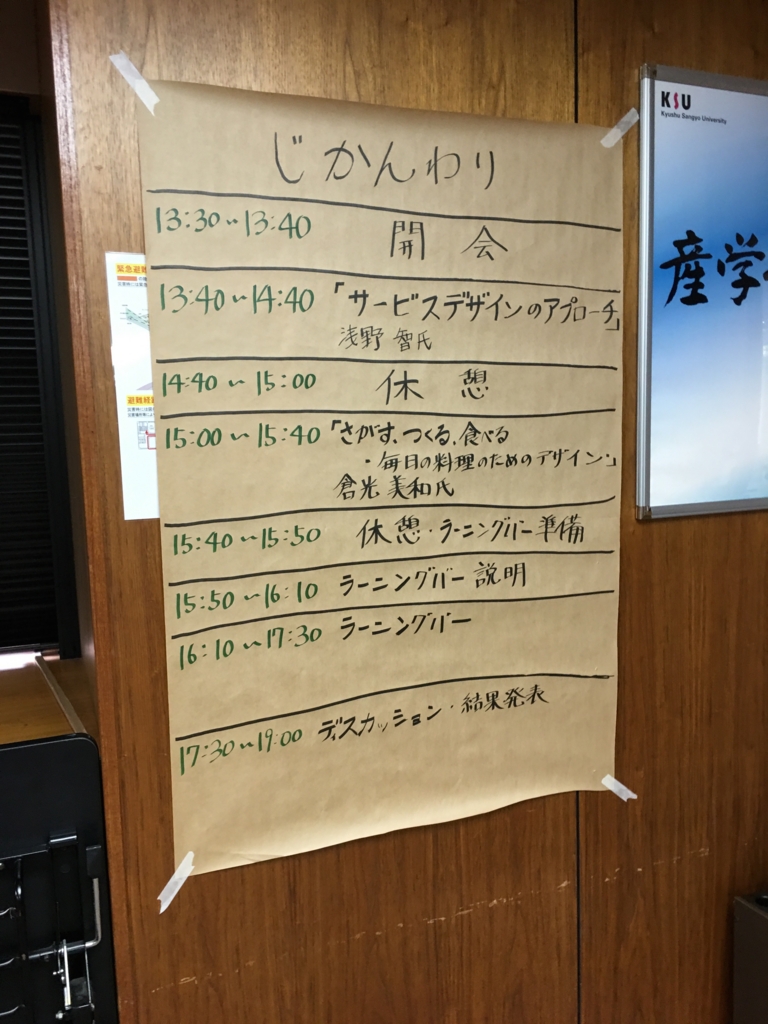 じかんわり
13:30〜13:40 開会
13:40〜14:40 「サービスデザインのアプローチ」
浅野 智氏
14:40〜15:00 休憩
15:00〜15:40 「さがす、つくる、食べる
・毎日の料理のためのデザイン・」
倉光 美和氏
15:40〜15:50 休憩・ラーニングバー準備
15:50〜16:10 ラーニングバー説明
16:10〜17:30 ラーニングバー
17:30〜19:00 ディスカッション・結果発表
KSU
Kyushu Sangyo University
産学
緊急避難
避難経